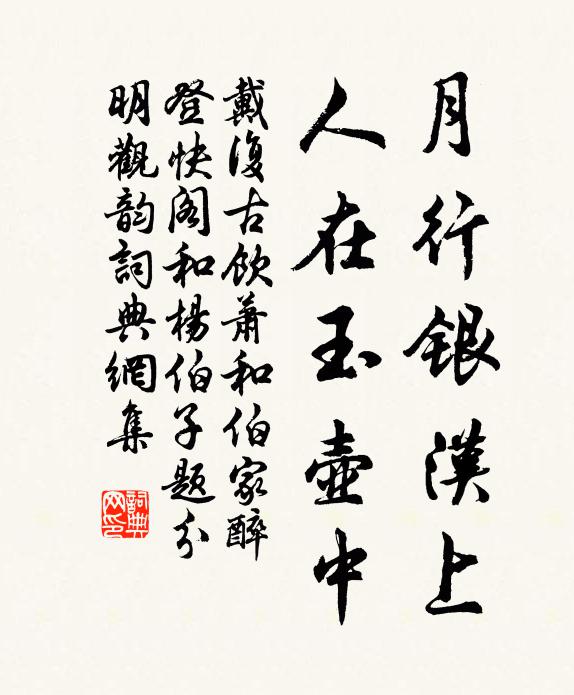 月行銀漢上
人在玉壺中
戴復古飲蕭和伯家醉
登快閣和楊伯子題分
明觀韵詞典網集
詞典网印